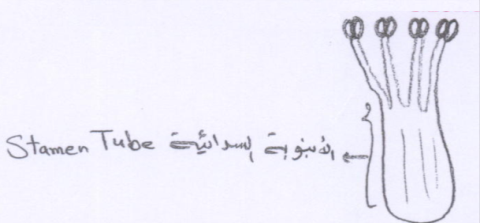 Stamen Tube الأنبوبة السدائية